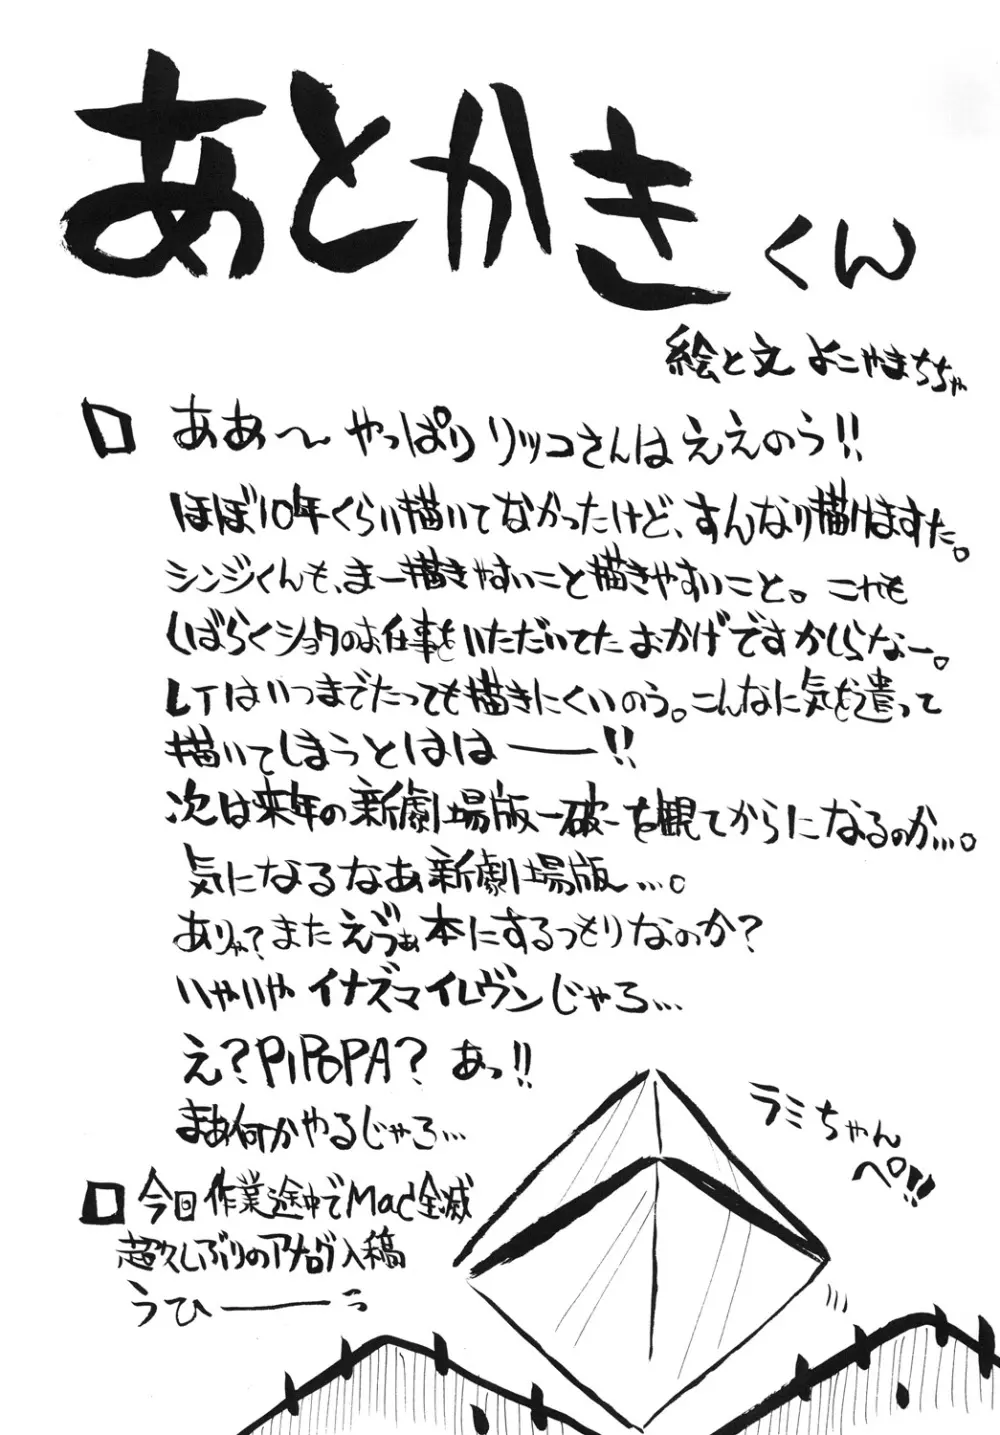 あとかきくん
絵と文 よこやまちちゃ
□ ああ〜やっぱりリッコさんはええのう!!
ほぼ10年くらい描いてなかったけど、すんなり描けますた。
シンジくんも、まー描きやすいこと描きやすいこと。これも
しばらくショタのお仕事をいただいてたおかげですかしらなー。
レイはいつまでたっても描きにくいのう。こんなに気を遣って
描いてしまうとはは――!!
次は来年の新劇場版-破-を観てからになるのか…。
気になるなあ新劇場版…。
ありゃ?またえゔぁ本にするつもりなのか?
いやいやイナズマイレヴンじゃろ…
え?PiPoPA?あっ!!
まあ何かやるじゃろ…
□ 今回作業途中でMac全滅
超久しぶりのアナログ入稿
うひ――っ
ラミちゃん
ペ!!